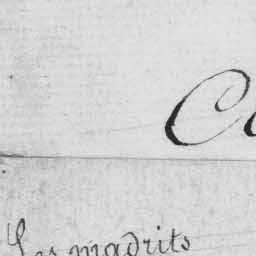 Les madrits